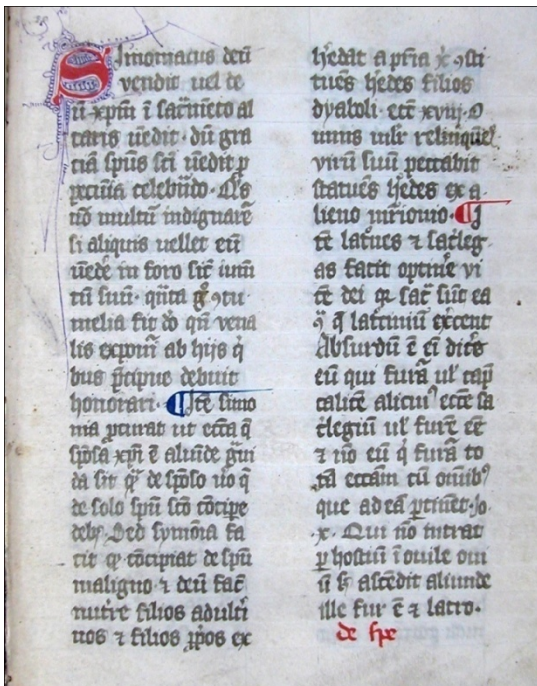 Simoniacus deū
vendit uel te
ū xp̄m ī sac̄mēto al
taris uēdit · dū gra
ciā sp̄us sc̄i uēdit p
pecūia celebrādo · Q̄s
nō multū indignaret̄
si aliquis vellet eū
uēde in foro sic̄ unū
suū · q̄nta ꝯtu
melia fit dō qn̄ vena
lis exponit̄ ab hijs q̇
bus p̄cipue debuit
honorari · ¶ Itē simo
nia ꝓcurat ut ecc̄a q̄
sp̄sa xp̄i ē aliūde g̃ui
da sit q̄ꝫ de sp̄oso uo q̄
de solo sp̄u sc̄o cōcipe
deb̄ꝫ · Sed symōia fa
cit qꝫ cōcipiat de sp̄u
maligno ⁊ deū fac̄
nut̄re filios adult̄i
nos ⁊ filios ꝓp̄os ex
h̄edat a p̄ria x̄ ꝯsti
tuēs h̄edes filios
dyaboli · ecc̄ xviij · O
mnis mlr̄ relinquēs
virū suū peccabit
statuēs h̄edes ex a
lieno mr̄ionio · ¶ I
tē lat̄nes ⁊ sac̄leg
as facit
cē dei qꝛ sac̄ sūt ea
ꝯ q̄ lat̄ciniū ex̄cent
Absurdū ē eī dic̄e
eū qui furat̄ ul̓ cap̄
calicē alicuiꝰ ecc̄e sa
c̄legiū ul̓ furē eē
⁊ nō eū q̇ furat̄ to
tā ecc̄am cū om̄ibꝰ
que ad eā ptinēt · Jo
· x · Qui nō intrat
ꝑ hostiū ī ouile oui
ū sꝫ ascēdit aliunde
ille fur ē ⁊ latro ·
de spe